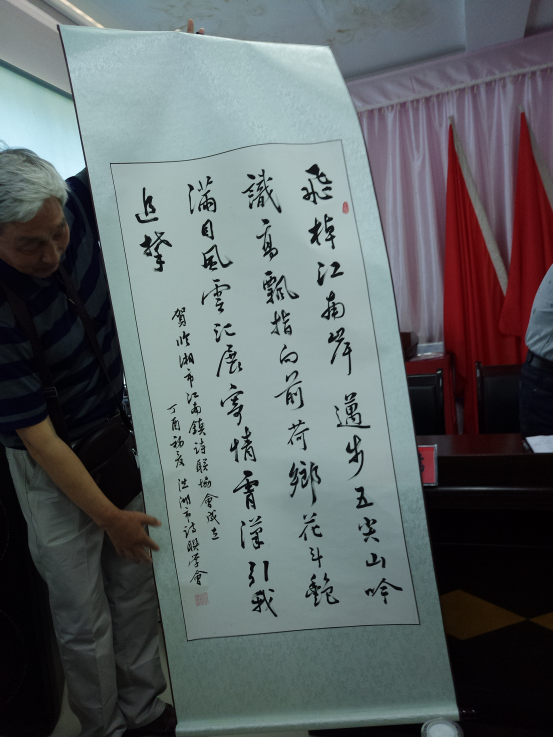 飛棹江南岸邁步五尖山吟
識高瓢指向前荷鄉花斗艶
滿目風雲汇展寄情霄漢引我
追攀
賀临湘市江南鎮詩联協會成立
丁酉初夏 洪湖市詩联学會